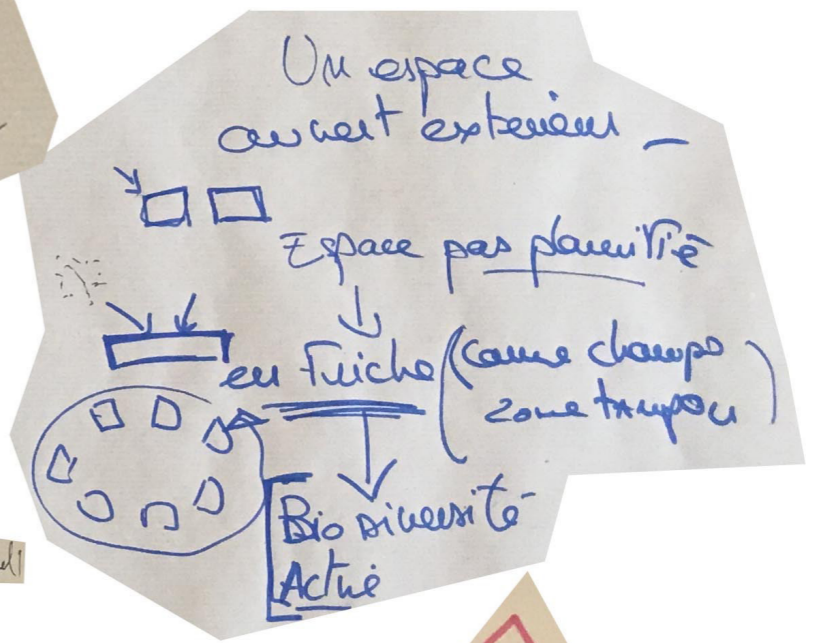 Un espace
ouvert extérieur -
Espace pas planifié
en friche (comme champs
zone tampon)
Biodiversité
Active